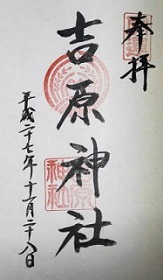 奉拝
吉原神社
平成二十七年十一月二十八日